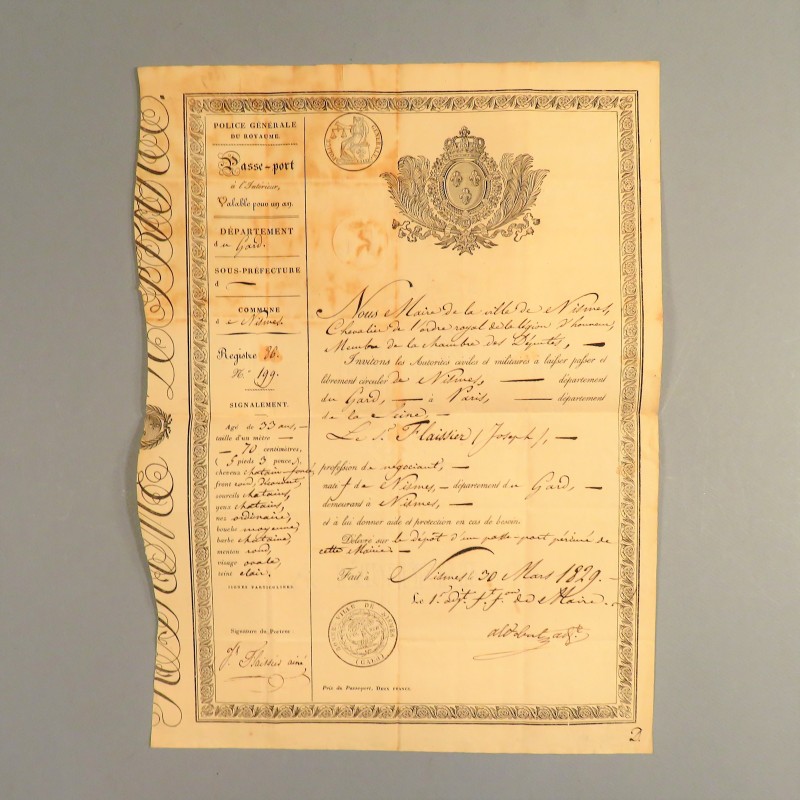 POLICE GÉNÉRALE
DU ROYAUME.
Passe-port
à l'Intérieur,
Valable pour un an.
DÉPARTEMENT
du Gard.
SOUS-PRÉFECTURE
d
COMMUNE
à Nismes
Registre 26.
N.º 199.
SIGNALEMENT.
Agé de 33 ans,
taille d'un mètre
70 centimètres,
(5 pieds 3 pouces,)
cheveux chatain-foncé,
front rond, découvert,
sourcils chatains,
yeux chatains,
nez ordinaire,
bouche moyenne,
barbe chataine,
menton rond,
visage ovale,
teint clair.
SIGNES PARTICULIERS.
Signature du Porteur :
Jh. Flaissier ainé
Nous Maire de la ville de Nismes,
Chevalier de l'ordre royal de la légion d'honneur,
Membre de la chambre des Députés,
Invitons les Autorités civiles et militaires à laisser passer et
librement circuler de Nismes, département
du Gard, à Paris, département
de la Seine,
Le S.r Flaissier (Joseph),
profession de négociant,
natif de Nismes, département du Gard,
demeurant à Nismes,
et à lui donner aide et protection en cas de besoin.
Délivré sur le dépôt d'un passe-port périmé de
cette Mairie.
Fait à Nismes le 30 Mars 1829.
Le 1.er adj.t f.f.on de Maire.
MAIRE VILLE DE NISMES
(GARD)
Prix du Passeport, DEUX FRANCS.
2.